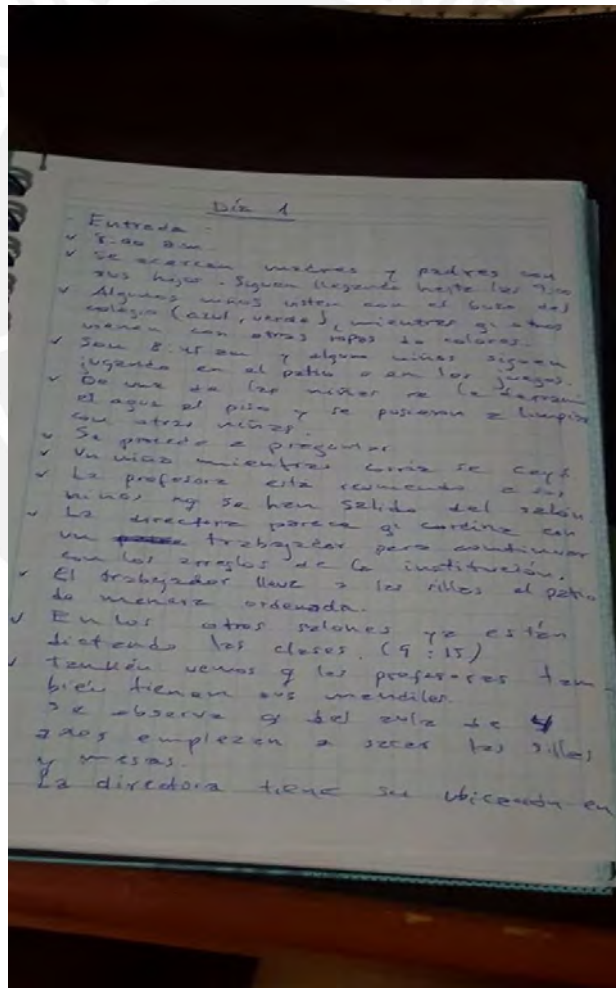 Día 1
- Entrada :
✓ 8:00 a.m
✓ Se acercan madres y padres con
sus hijos. Siguen llegando hasta las 9:00
✓ Algunos niños visten con el buzo del
colegio (azul, verde), mientras q' otros
vienen con otras ropas de colores.
✓ Son 8:45 am y algunos niños siguen
jugando en el patio o en los juegos.
✓ De una de las niñas se le derramó
el agua al piso y se pusieron a limpiar
con otras niñas.
✓ Se procede a preguntar
✓ Un niño mientras corría se cayó
✓ La profesora está reuniendo a sus
niños q se han salido del salón
✓ La directora parece q' cordina con
un trabajador para continuar
con los arreglos de la institución.
✓ El trabajador lleva a las sillas al patio
de manera ordenada.
✓ En los otros salones ya están
dictando las clases. (9:15)
✓ También vemos q las profesoras tam
bién tienen sus mandiles.
Se observa q del aula de 4
años empiezan a sacar las sillas
y mesas.
La directora tiene su ubicación en